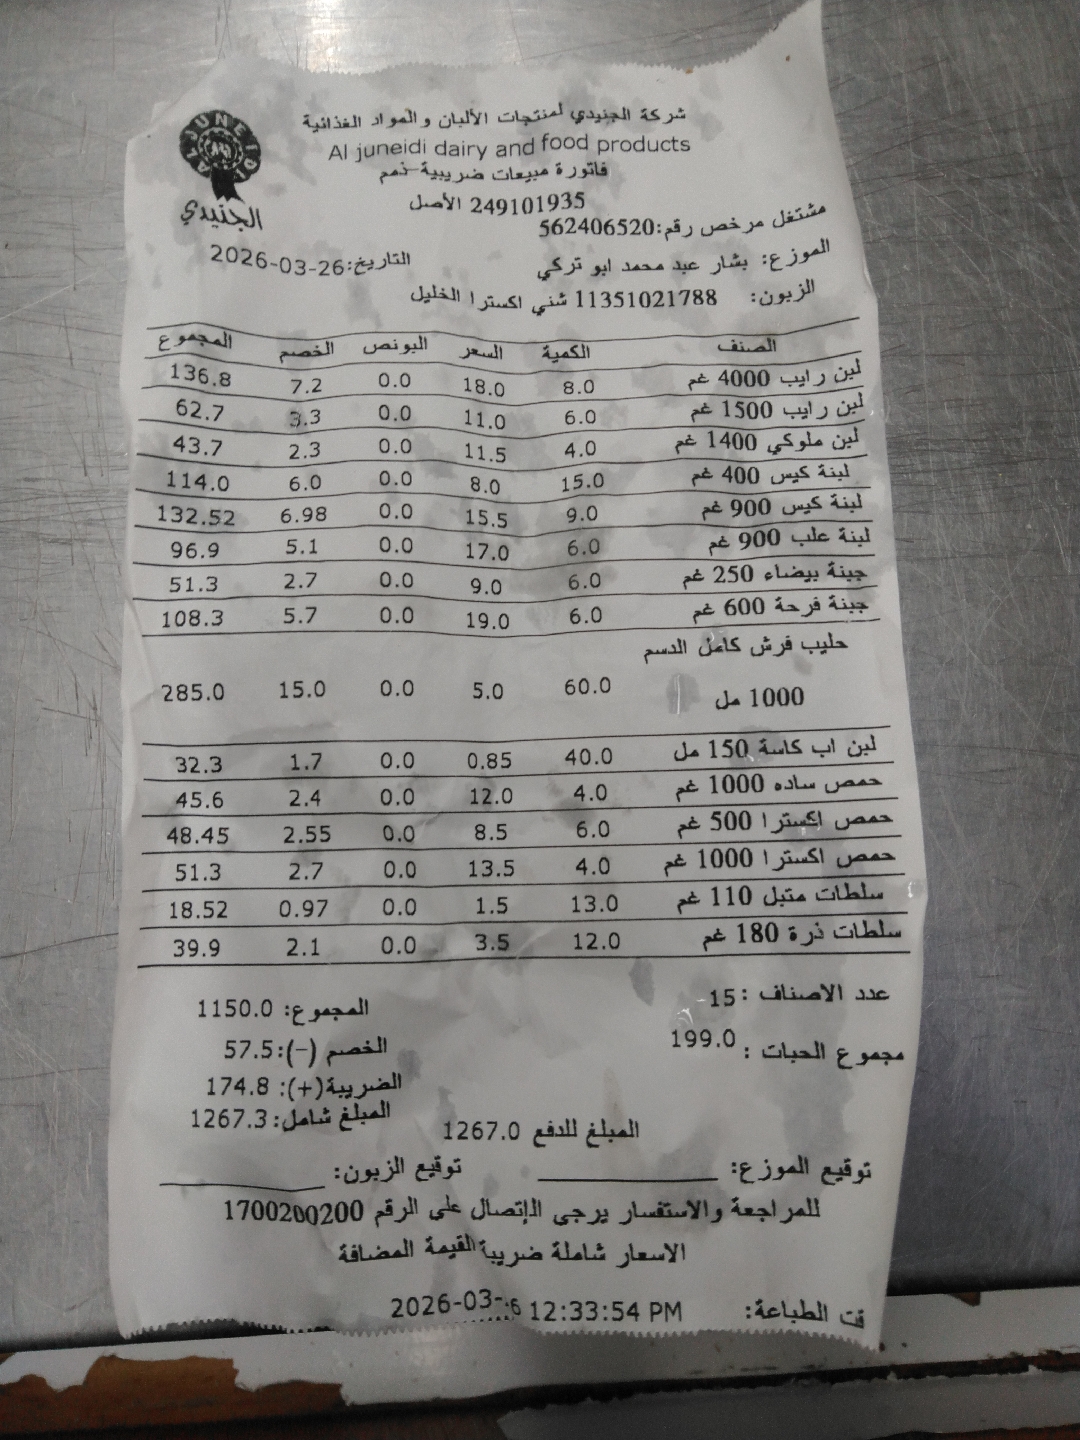 شركة الجنيدي لمنتجات الألبان والمواد الغذائية
Al juneidi dairy and food products
AL JUNEIDI
الجنيدي
فاتورة مبيعات ضريبية-ذمم
249101935 الأصل
مشتغل مرخص رقم:562406520
الموزع: بشار عبد محمد ابو تركي
التاريخ:26-03-2026
الزبون: 11351021788 شني اكسترا الخليل
الصنف الكمية السعر البونص الخصم المجموع
لبن رايب 4000 غم 8.0 18.0 0.0 7.2 136.8
لبن رايب 1500 غم 6.0 11.0 0.0 3.3 62.7
لبن ملوكي 1400 غم 4.0 11.5 0.0 2.3 43.7
لبنة كيس 400 غم 15.0 8.0 0.0 6.0 114.0
لبنة كيس 900 غم 9.0 15.5 0.0 6.98 132.52
لبنة علب 900 غم 6.0 17.0 0.0 5.1 96.9
جبنة بيضاء 250 غم 6.0 9.0 0.0 2.7 51.3
جبنة فرحة 600 غم 6.0 19.0 0.0 5.7 108.3
حليب فرش كامل الدسم
1000 مل 60.0 5.0 0.0 15.0 285.0
لبن اب كاسة 150 مل 40.0 0.85 0.0 1.7 32.3
حمص ساده 1000 غم 4.0 12.0 0.0 2.4 45.6
حمص اكسترا 500 غم 6.0 8.5 0.0 2.55 48.45
حمص اكسترا 1000 غم 4.0 13.5 0.0 2.7 51.3
سلطات متبل 110 غم 13.0 1.5 0.0 0.97 18.52
سلطات ذرة 180 غم 12.0 3.5 0.0 2.1 39.9
عدد الاصناف :15
المجموع: 1150.0
مجموع الحبات : 199.0
الخصم (-):57.5
الضريبة(+): 174.8
المبلغ شامل: 1267.3
المبلغ للدفع 1267.0
توقيع الموزع:
توقيع الزبون:
للمراجعة والاستفسار يرجى الإتصال على الرقم 1700200200
الاسعار شاملة ضريبة القيمة المضافة
قت الطباعة: 2026-03- 12:33:54 PM